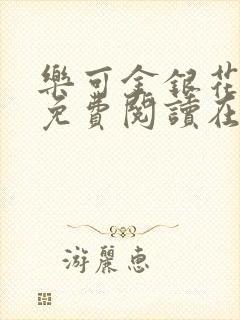 樂可金銀花
免費閱讀在
游麗惠